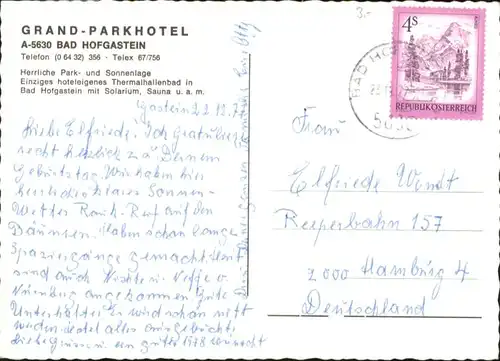 GRAND-PARKHOTEL
A-5630 BAD HOFGASTEIN
Telefon (0 64 32) 356 - Telex 67/756
Herrliche Park- und Sonnenlage
Einziges hoteleigenes Thermalhallenbad in
Bad Hofgastein mit Solarium, Sauna u. a. m.
Gastein 22.12.77
Liebe Elfriede! Ich gratuliere
recht herzlich zu Deinem
Geburtstag. Wir haben hier
herrlich klares Sonnen-
Wetter Rauh-Reif auf den
Bäumen. Haben schon lange
Spaziergänge gemacht. Heut
sind auch Nichte u. Neffe v.
Nürnberg angekommen Gute
Unterhalter. Es wird schon nett
werden. Hotel alles ausgebucht.
Liebe Grüsse u. ein gutes 1978 wünscht
3.-
4 S
REPUBLIK ÖSTERREICH
BAD HOF
5630
Frau
Elfriede Wendt
Reeperbahn 157
2000 Hamburg 4
Deutschland